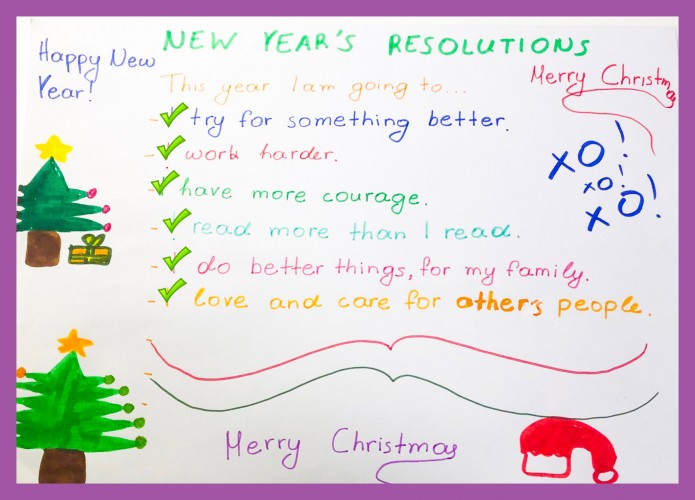 NEW YEAR'S RESOLUTIONS
Happy New
Year!
Merry Christmas
This year I am going to...
- try for something better.
- work harder.
- have more courage.
- read more than I read.
- do better things, for my family.
- love and care for other's people.
xO!
xO!
xO!
Merry Christmas